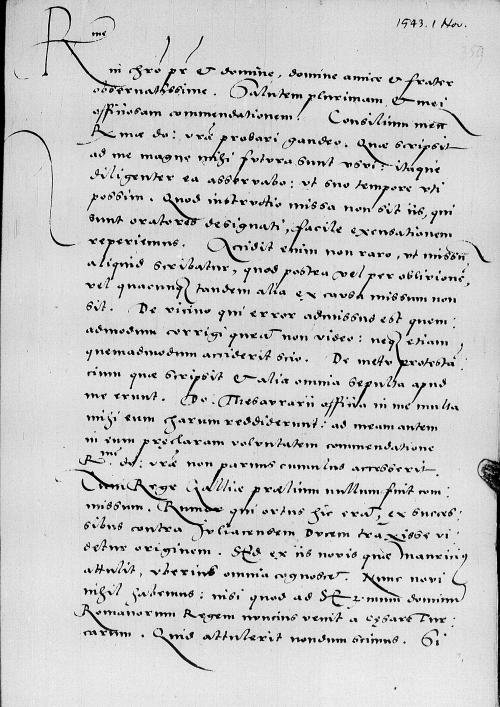 1543. 1 Nov.
359
Rme
in chro pr et domine, domine amice et frater
observatissime. Salutem plurimam et mei
officiosam commendationem. Consilium meu
Rmae do: vrae probari gaudeo. Quae scripsit
ad me magno mihi futura sunt usui: itaque
diligenter ea asservabo: ut suo tempore uti
possim. Quod instructio missa non sit iis, qui
sunt oratores designati, facile excusationem
reperiemus. Accidit enim non raro, ut missu
aliquid scribatur, quod postea vel per oblivione,
vel quacunq tandem alia ex causa missum non
sit. De vicino qui error admissus est quem:
admodum corrigi queat non video: neq etiam
quemadmodum acciderit scio. De metu protesta
cium quae scripsit et alia omnia sepulta apud
me erunt. Do: Thesaurarii officia in me multa
mihi eum charum reddiderunt: ad meam autem
in eum praeclaram voluntatem commendatione
Rmae do: vrae non parvus cumulus accesserit.
Cum Rege Galliae praelium nullum fuit com:
missum. Rumor qui ortus hic erat, ex succes:
sibus contra Juliacensem Ducem traxisse vi
detur originem. Sed ex iis novis quae Mauricius
attulit, uberius omnia cognoscet. Nunc novi
nihil habemus: nisi quod ad Sermum dominu
Romanorum Regem nuncius venit a Cesare Tur:
carum. Quid attulerit nondum scimus. Si